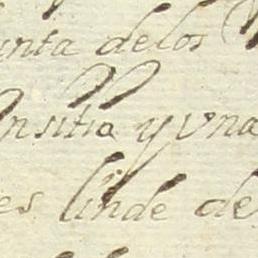 unta delos
nsitio y vna
es linde de